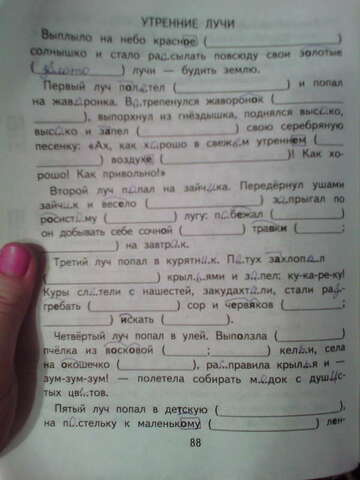 УТРЕННИЕ ЛУЧИ
Выплыло на небо красное (____________)
солнышко и стало рассылать повсюду свои золотые
(золото) лучи — будить землю.
Первый луч полетел (____________) и попал
на жаворонка. Встрепенулся жаворонок (________
________), выпорхнул из гнёздышка, поднялся высоко,
высоко и запел (____________) свою серебряную
песенку: «Ах, как хорошо в свежем утреннем (____
________) воздухе (____________)! Как хо-
рошо! Как привольно!»
Второй луч попал на зайчика. Передёрнул ушами
зайчик и весело (____________) запрыгал по
росистому (____________) лугу: побежал (____________)
он добывать себе сочной (________) травки (________;
____________) на завтрак.
Третий луч попал в курятник. Петух захлопал
(____________) крыльями и запел: ку-ка-ре-ку!
Куры слетели с нашестей, закудахтали, стали раз-
гребать (____________) сор и червяков (________;
____________) искать (____________).
Четвёртый луч попал в улей. Выползла (________)
пчёлка из восковой (________; ________) кельи, села
на окошечко (____________), расправила крылья и —
зум-зум-зум! — полетела собирать медок с душис-
тых цветов.
Пятый луч попал в детскую (____________),
на постельку к маленькому (____________) лен-
88